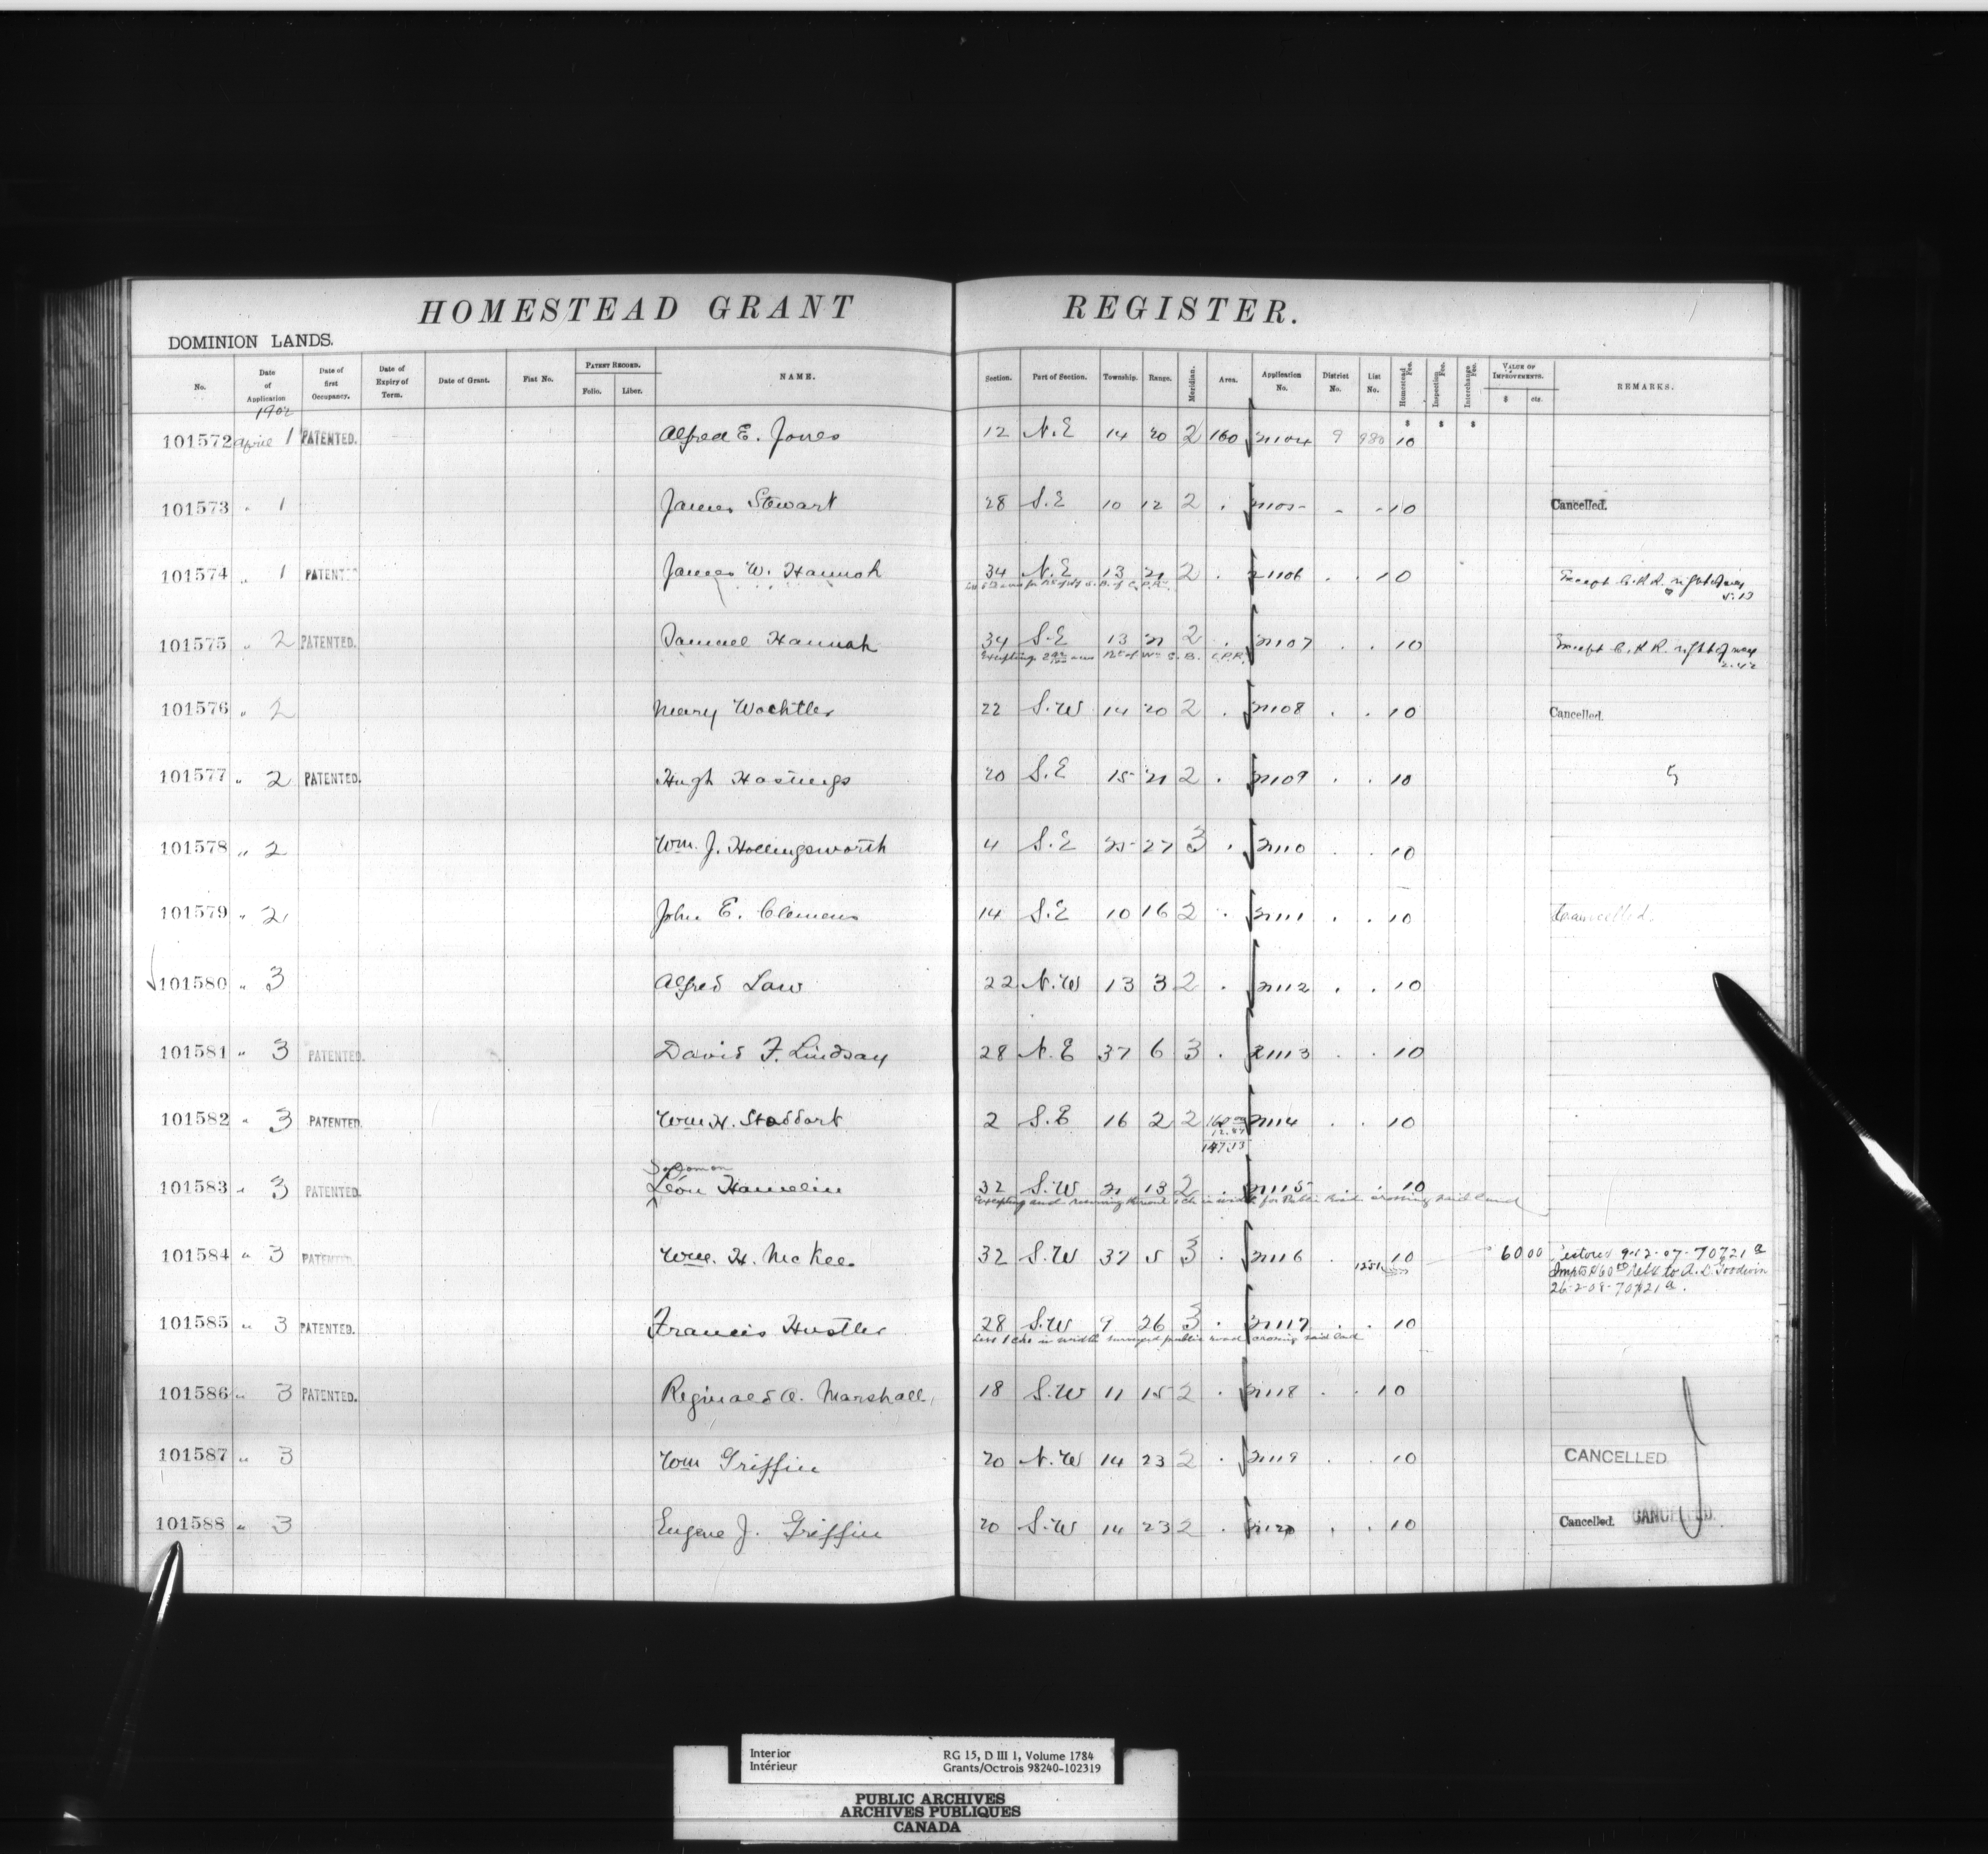 HOMESTEAD GRANT REGISTER.
DOMINION LANDS.
No. Date of Application Date of first Occupancy. Date of Expiry of Term. Date of Grant. Fiat No. PATENT RECORD. Folio. Liber. NAME. Section. Part of Section. Township. Range. Meridian. Area. Application No. District No. List No. Homestead Fee. Inspection Fee. Interchange Fee. VALUE OF IMPROVEMENTS. $ cts. REMARKS.
1902 $ $ $
101572 April 1 PATENTED. Alfred E. Jones 12 N.E 14 20 2 160 21104 9 980 10
101573 " 1 James Stewart 28 S.E 10 12 2 . 21105 - - 10 Cancelled.
101574 " 1 PATENTED James W. Hannah 34 N.E 13 21 2 . 21106 . . 10 Except C.P.R. right of way
5.13
101575 " 2 PATENTED. Samuel Hannah 34 S.E 13 21 2 . 21107 . . 10 Except C.P.R. right of way
2.42
Excepting acres Rt of Way S. B. C.P.R.
101576 " 2 Mary Wachtler 22 S.W 14 20 2 . 21108 . . 10 Cancelled.
101577 " 2 PATENTED. Hugh Hastings 20 S.E 15 21 2 . 21109 . . 10 5
101578 " 2 Wm. J. Hollingsworth 4 S.E 25 27 3 . 21110 . . 10
101579 " 2 John E. Clemens 14 S.E 10 16 2 . 21111 . . 10 Cancelled.
101580 " 3 Alfred Law 22 N.W 13 3 2 . 21112 . . 10
101581 " 3 PATENTED. David F. Lindsay 28 N.E 37 6 3 . 21113 . . 10
101582 " 3 PATENTED. Wm H. Stoddart 2 S.E 16 2 2 160.00 21114 . . 10
12.87
147.13
Solomon
101583 " 3 PATENTED. Léon Hamelin 32 S.W 21 13 2 . 21115 . . 10
Excepting and reserving thereout 1 ch in width for Public Road crossing said land
101584 " 3 PATENTED. Wm. H. McKee 32 S.W 37 5 3 . 21116 . 10 60 00 Restored 9-12-07-70721 a
Impts $60 00 Held to A. L. Goodwin
26-2-08-70721 a.
101585 " 3 PATENTED. Francis Hustler 28 S.W 9 26 3 . 21117 . . 10
Less 1 chn in width surveyed public road crossing said land
101586 " 3 PATENTED. Reginald A. Marshall 18 S.W 11 15 2 . 21118 . . 10
101587 " 3 Wm Griffin 20 N.W 14 23 2 . 21119 . . 10 CANCELLED
101588 " 3 Eugene J. Griffin 20 S.W 14 23 2 . 21120 . . 10 Cancelled. CANCELLED.
Interior RG 15, D III 1, Volume 1784
Intérieur Grants/Octrois 98240-102319
PUBLIC ARCHIVES
ARCHIVES PUBLIQUES
CANADA